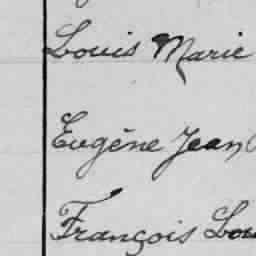 Louis Marie
Eugène Jean
François Lou